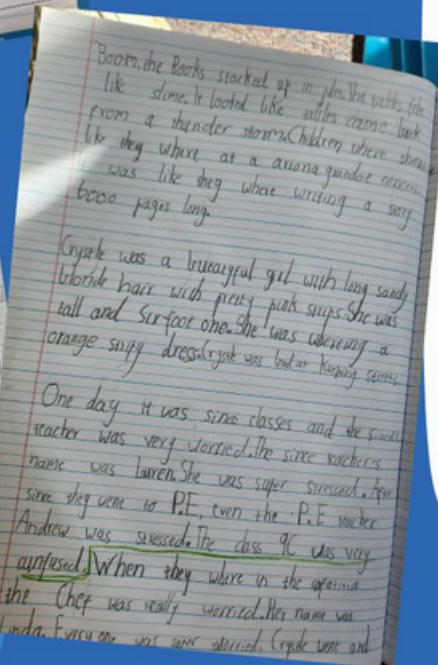 Boom. the Books stacked up in piles. The tables felt
like slime. It looked like tables came back
from a thunder storm. Children where
like they where at a ariana grandoe concert
it was like they where writing a story
6000 pages long.
Crystle was a girl with long sandy
blonde hair with pretty pink strips. She was
tall and Six foot one. She was whereing a
orange dress. Crystle was bad at Keeping secrets
One day it was since classes and the since
teacher was very worried. The since teacher's
name was lauren. She was super stressed. After
since they went to P.E, even the P.E teacher
Andrew was stressed. The class 9C was very
When they where in the
the Chef was really worried. Her name was
Linda. Every one was worried. Crystle went and